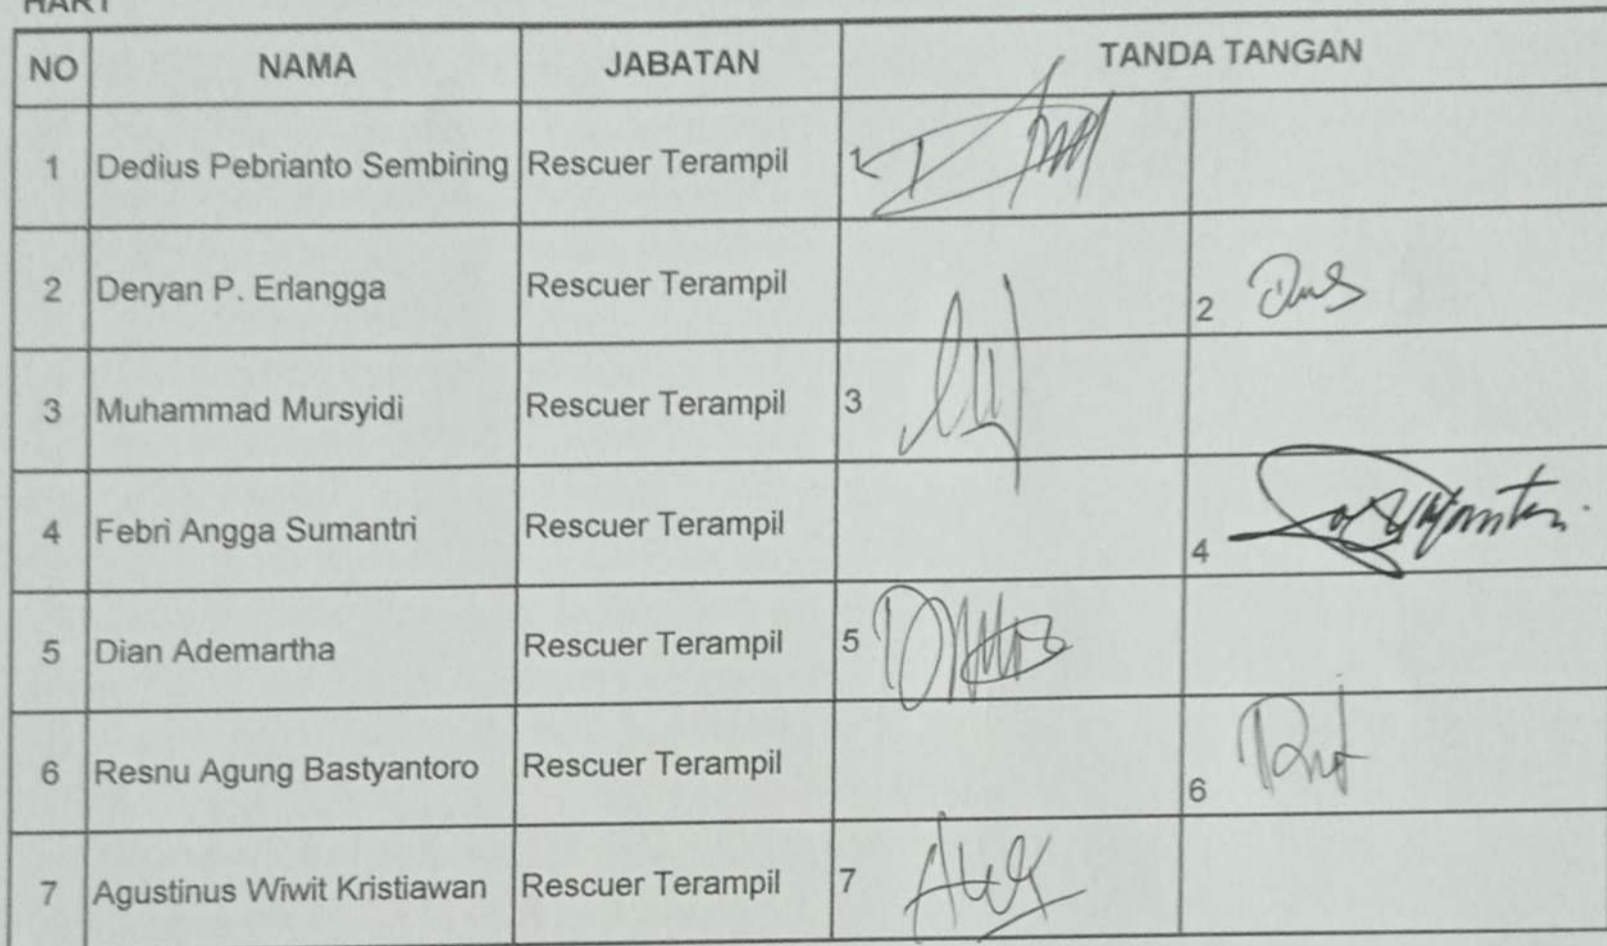 HARI
NO NAMA JABATAN TANDA TANGAN
1 Dedius Pebrianto Sembiring Rescuer Terampil 1
2 Deryan P. Erlangga Rescuer Terampil 2
3 Muhammad Mursyidi Rescuer Terampil 3
4 Febri Angga Sumantri Rescuer Terampil 4
5 Dian Ademartha Rescuer Terampil 5
6 Resnu Agung Bastyantoro Rescuer Terampil 6
7 Agustinus Wiwit Kristiawan Rescuer Terampil 7